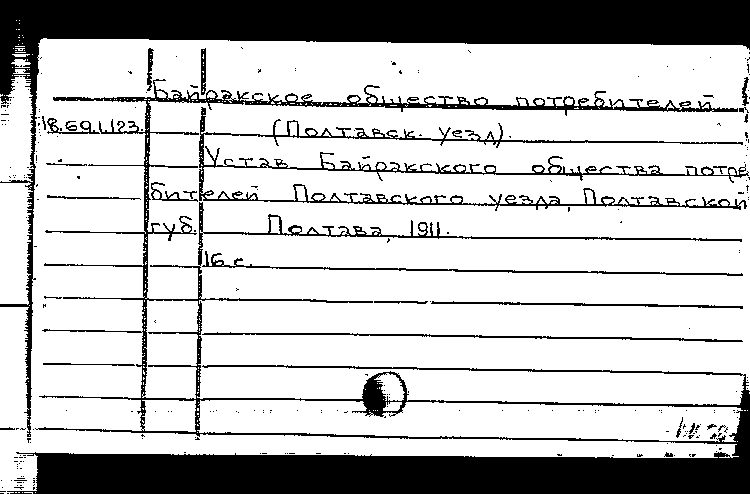 Байракское общество потребителей
18.69.1.123
(Полтавск. уезд).
Устав Байракского общества потре
бителей Полтавского уезда, Полтавской
губ. Полтава, 1911.
16 с.